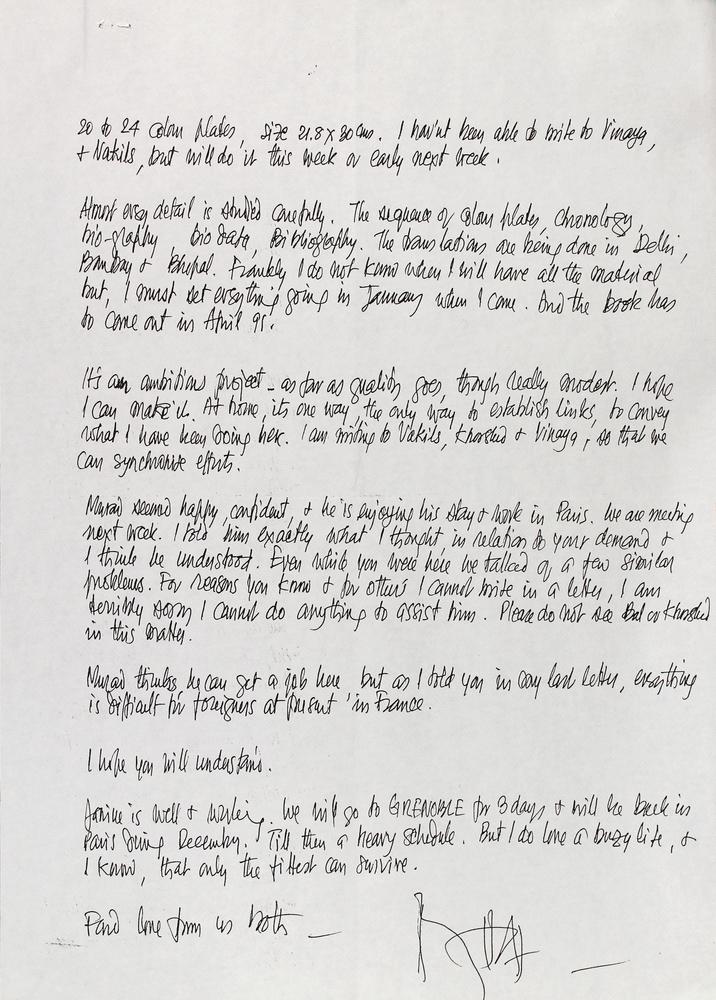 20 to 24 colour plates, size 21.8 x 30 cms. I hav'nt been able to write to Vinaya,
+ Vakils, but will do it this week or early next week.
Almost every detail is studied carefully. The sequence of colour plates, chronology,
bio-graphy, bio data, Bibliography. The translations are being done in Delhi,
Bombay & Bhopal. Frankly I do not know when I will have all the material
but, I must set everything going in January when I come. And the book has
to come out in April 95.
It's an ambitious project - as far as quality goes, though really modest. I hope
I can make it. At home, its one way, the only way to establish links, to convey
what I have been doing here. I am writing to Vakils, Khorshed & Vinaya, so that we
can synchronise efforts.
Murad seemed happy, confident, & he is enjoying his stay & work in Paris. We are meeting
next week. I told him exactly what I thought, in relation to your demand &
I think he understood. Even while you were here we talked of a few similar
problems. For reasons you know & for others I cannot write in a letter, I am
terribly sorry I cannot do anything to assist him. Please do not see Bal or Khorshed
in this matter.
Murad thinks, he can get a job here, but as I told you in my last letter, everything
is difficult for foreigners at present in France.
I hope you will understand.
Janine is well & working. We will go to GRENOBLE for 3 days & will be back in
Paris during December. Till then a heavy schedule. But I do love a buzy life, &
I know, that only the fittest can survive.
love from us both —